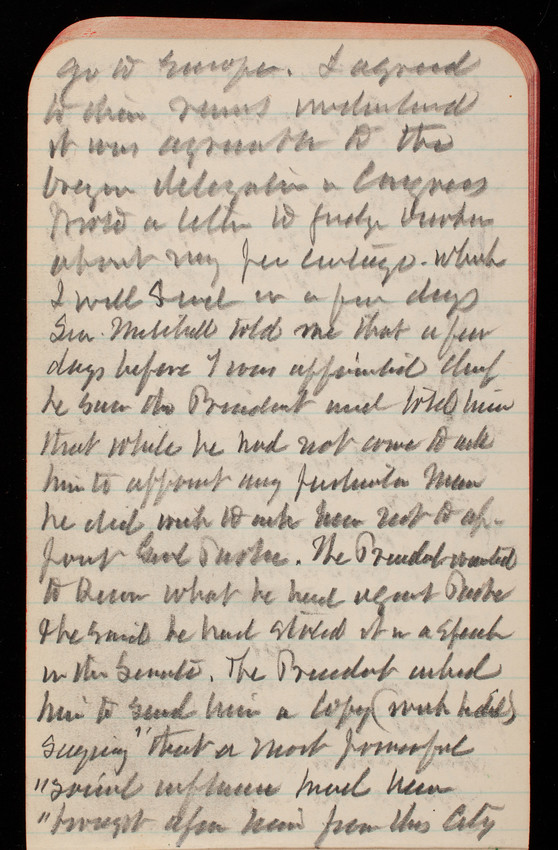 go to Europe. I agreed
to dine
it was agreeable to the
Oregon delegation in Congress
Wrote a letter to Judge
about my which
I will send in a few days
Sen. Mitchell told me that a few
days before I was appointed Chief
he saw the President and told him
that while he had not come to ask
him to appoint any particular man
he did wish to ask him not to ap-
point Genl The President wanted
to know what he had against
& he said he had stated it in a speech
in the Senate. The President asked
him to send him a copy (which he did)
saying "that a most powerful
"social influence had been
"brought upon him from this City